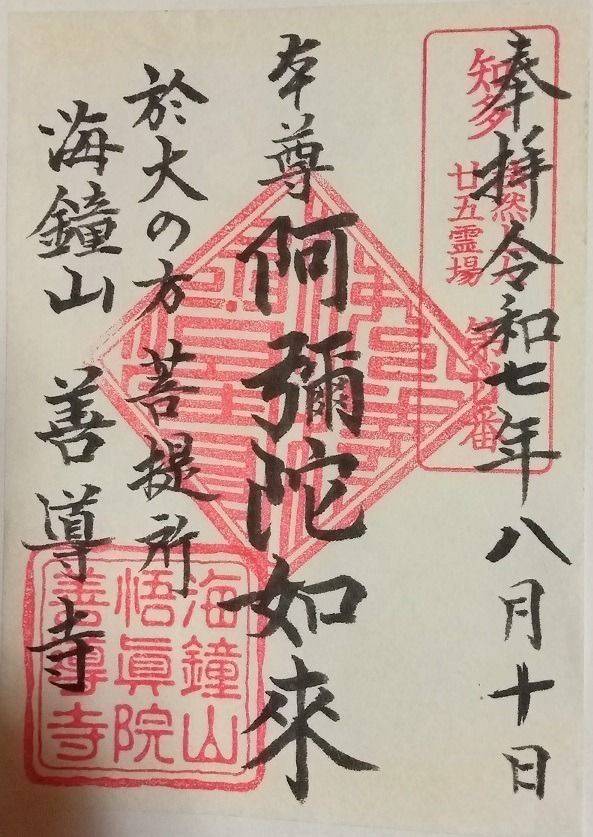 奉拝令和七年八月十日
知多
法然上人
廿五霊場
本尊阿彌陀如來
於大の方菩提所
海鐘山善導寺
海鐘山
悟眞院
善導寺